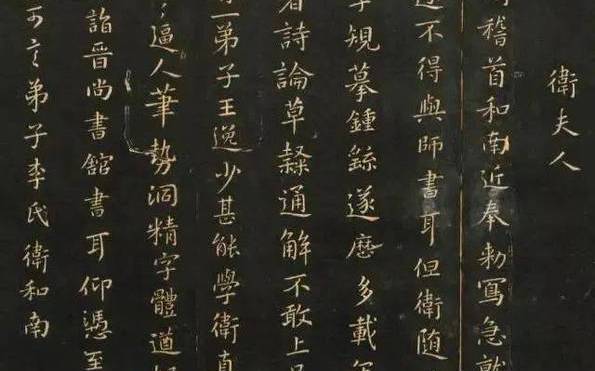 衛夫人
稽首和南近奉勅寫急就
不得與師書耳但衛随
規摹鍾繇遂歷多載
詩論草隸通解不敢上
一弟子王逸少甚能學衛真
逼人筆勢洞精字體遒
詣晉尚書館書耳仰憑至
可言弟子李氏衛和南